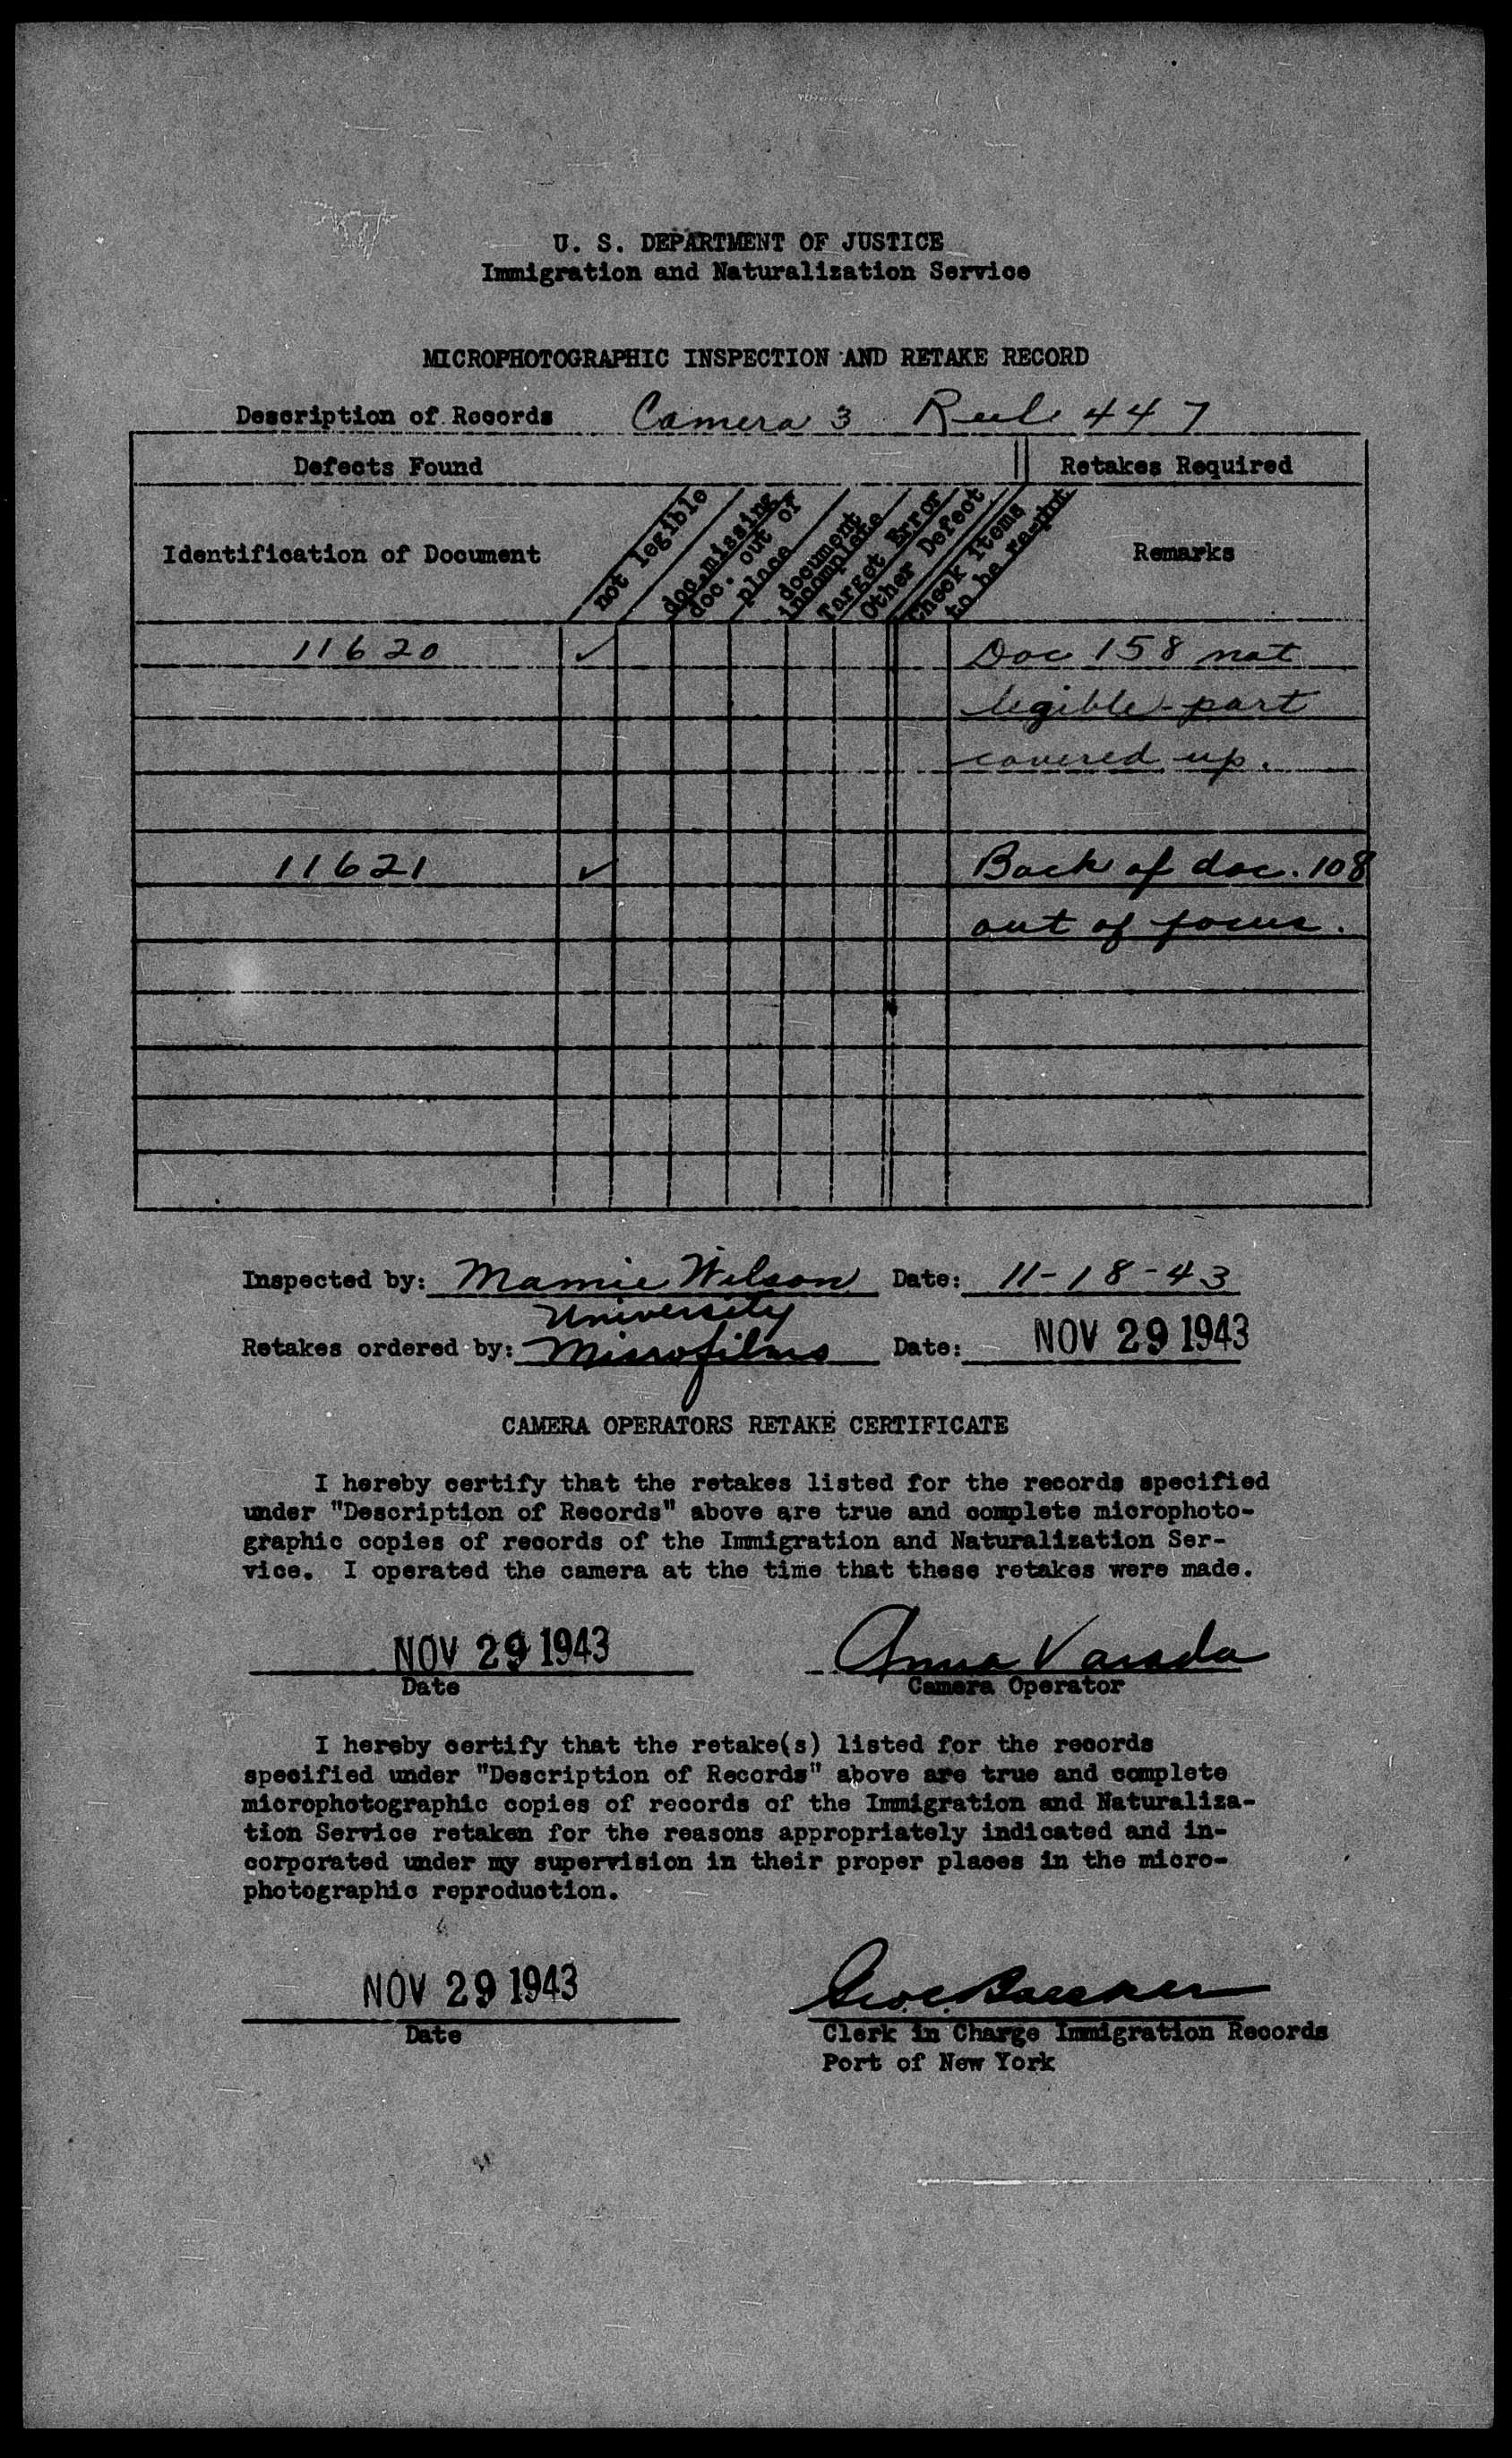 U. S. DEPARTMENT OF JUSTICE
Immigration and Naturalization Service
MICROPHOTOGRAPHIC INSPECTION AND RETAKE RECORD
Description of Records Camera 3 Reel 447
Defects Found Retakes Required
Identification of Document
not legible
doc. missing
doc. out of
place
document
incomplete
Target Error
Other Defect
Check items
to be re-phot
Remarks
11620 ✓ Doc 158 not
legible - part
covered up.
11621 ✓ Back of doc. 108
out of focus.
Inspected by: Mamie Wilson Date: 11-18-43
University
Retakes ordered by: Microfilms Date: NOV 29 1943
CAMERA OPERATORS RETAKE CERTIFICATE
I hereby certify that the retakes listed for the records specified
under "Description of Records" above are true and complete microphoto-
graphic copies of records of the Immigration and Naturalization Ser-
vice. I operated the camera at the time that these retakes were made.
NOV 29 1943 Anna
Date Camera Operator
I hereby certify that the retake(s) listed for the records
specified under "Description of Records" above are true and complete
microphotographic copies of records of the Immigration and Naturaliza-
tion Service retaken for the reasons appropriately indicated and in-
corporated under my supervision in their proper places in the micro-
photographic reproduction.
NOV 29 1943
Date Clerk in Charge Immigration Records
Port of New York